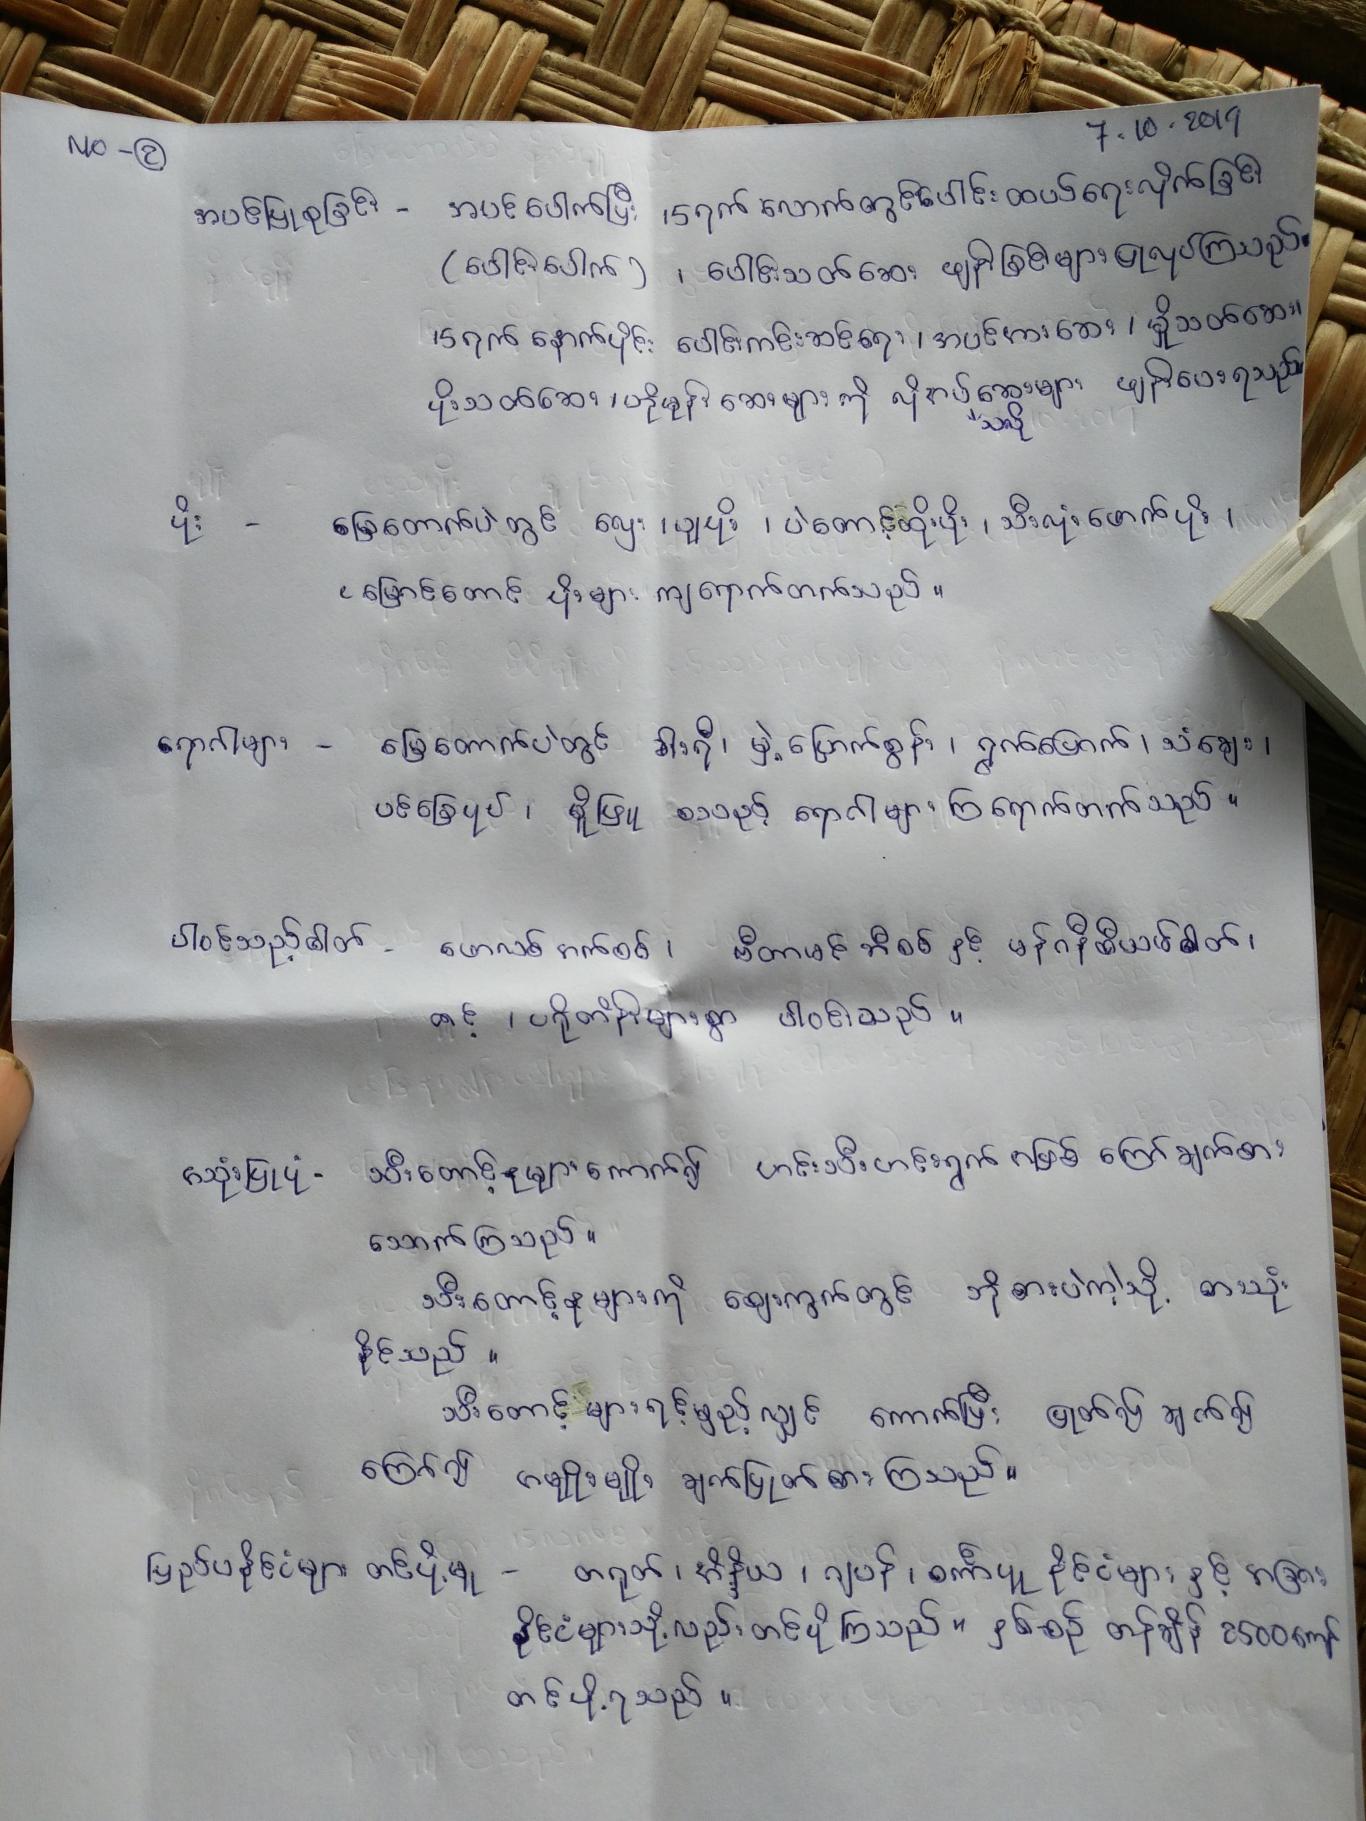 NO - ②
7.10.2019
အပင်ပြုစုခြင်း - အပင်ပေါက်ပြီး 15 ရက် လောက်တွင် ပေါင်းထပယ်ရေးလိုက်ခြင်း
(ပေါင်းပေါက်) ၊ ပေါင်းသတ်ဆေး ဖျန်းခြင်းများ ပြုလုပ်ကြသည်။
15 ရက် နောက်ပိုင်း ပေါင်းကင်းစင်ရေး ၊ အပင်အားဆေး ၊ မှိုသတ်ဆေး၊
ပိုးသတ်ဆေး ၊ ဟိုမုန်းဆေးများကို လိုအပ်သလို ဖျန်းပေးရသည်။
ပိုး - မြေထောက်ပဲတွင် လှေး ၊ ပျပိုး ၊ ပဲတောင့်ထိုးပိုး ၊ သီးလုံးဖောက်ပိုး ၊
မြှောင်တောင် ပိုးများ ကျရောက်တက်သည် ။
ရောဂါများ - မြေထောက်ပဲတွင် ၊ မှဲ့ပြောက်စွန်း ၊ ရွက်ပြောက် ၊ သံချေး ၊
ပင်ခြေပုပ် ၊ မှိုဖြူ စသည့် ရောဂါများ ကြရောက်တက်သည် ။
ပါဝင်သည့်ဓါတ် - ဖောလစ်အက်စစ် ၊ ဗီတာမင်ဘီစစ် နှင့် မန်ဂနိစီယမ်ဓါတ် ၊
တင့် ၊ ပရိုတိန်းများစွာ ပါဝင်သည် ။
အသုံးပြုပုံ - သီးတောင့်နုများကောက်၍ ဟင်းသီးဟင်းရွက်အဖြစ် ကြော်ချက်စား
သောက်ကြသည် ။
သီးတောင့်နုများကို ဈေးကွက်တွင် ဘိုစားပဲကဲ့သို့ စားသုံး
နိုင်သည် ။
သီးတောင့်များရင့်မှည့်လျှင် ကောက်ပြီး ပြုတ်၍ ချက်၍
ကြော်၍ အမျိုးမျိုး ချက်ပြုတ်စားကြသည် ။
ပြည်ပနိုင်ငံများ တင်ပို့မှု - တရုတ် ၊ အိန္ဒိယ ၊ ဂျပန် ၊ စင်္ကာပူ နိုင်ငံများ နှင့် အခြား
နိုင်ငံများသို့လည်းတင်ပို့ကြသည် ။ နှစ်စဉ် တန်ချိန် 2500ကျော်
တင်ပို့ရသည် ။